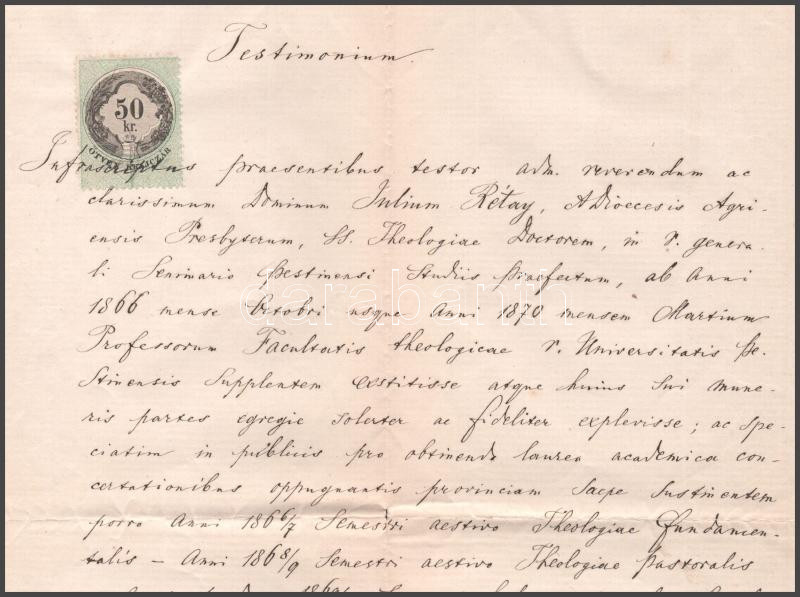 Testimonium.
50
kr.
ÖTVEN KRAJCZÁR
Infrascriptus praesentibus testor adm. reverendum ac
clarissimum Dominum Julium Rétay, ADioecesis Agri-
ensis Presbyterum, SS. Theologiae Doctorem, in r. genera-
li Seminario Pestinensi Studiis Praefectum, ab Anni
1866 mense Octobri usque Anni 1870 mensem Martium
Professorum Facultatis theologicae r. Universitatis Pe-
stinensis Supplentem exstitisse atque huius sui mune-
ris partes egregie solerter ac fideliter explevisse; ac spe-
ciatim in publicis pro obtinenda laurea academica con-
certationibus oppugnantis provinciam saepe sustinentem
porro Anni 1866/7 Semestri aestivo Theologiae fundamen-
talis – Anni 1868/9 Semestri aestivo Theologiae Pastoralis
darabanth